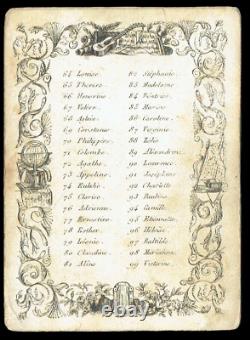 64 Louise
65 Therèse
66 Honorine
67 Valère
68 Aglaée
69 Constance
70 Philippine
71 Colombe
72 Agathe
73 Appoline
74 Eulalie
75 Clarice
76 Adrienne
77 Ernestine
78 Esther
79 Léonie
80 Claudine
81 Aline
82 Stéphanie
83 Madeleine
84 Béatrice
85 Marion
86 Caroline
87 Virginie
88 Lélie
89 Alexandrine
90 Laurence
91 Joséphine
92 Charlotte
93 Pauline
94 Camille
95 Etiennette
96 Hélène
97 Mathilde
98 Marianne
99 Victorine